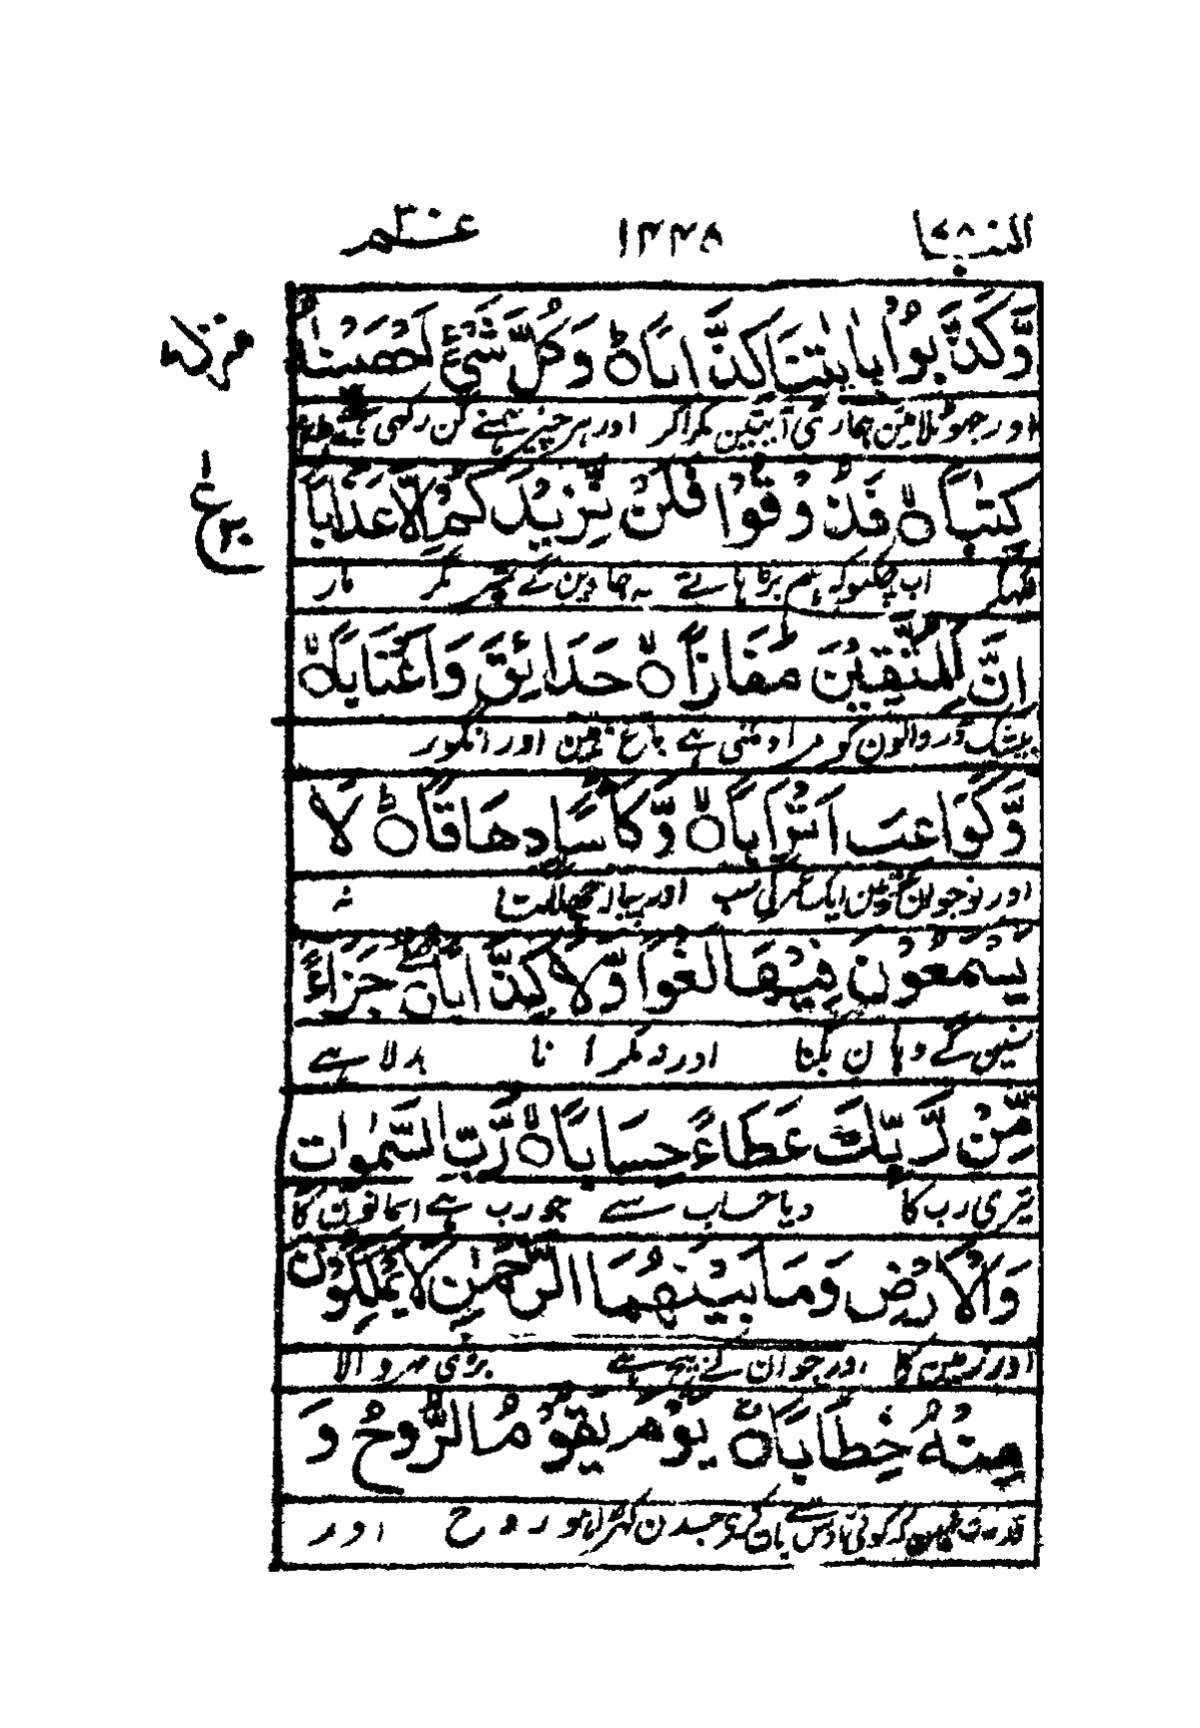 النبا ٧٨ ١٢٢٨ عم ٣٠
وَّكَذَّبُوْا بِاٰيٰتِنَا كِذَّابًا ۝ وَكُلَّ شَيْءٍ اَحْصَيْنٰهُ
اور جھوٹلائین ہماری آیتین مکراکر اور ہر چیز ہمنے گن رکھی ہے
كِتٰبًا ۝ فَذُوْقُوْا فَلَنْ نَّزِيْدَكُمْ اِلَّا عَذَابًا
لکھکر اب چکھو کہ ہم بڑہاتے نہ جاوین گے تمپر مگر مار
اِنَّ لِلْمُتَّقِيْنَ مَفَازًا ۝ حَدَائِقَ وَاَعْنَابًا ۝
بیشک ڈر والون کو مراد ملنی ہے باغ ہین اور انگور
وَّكَوَاعِبَ اَتْرَابًا ۝ وَّكَاْسًا دِهَاقًا ۝ لَا
اور نوجوان عورتین ایک عمر کی سب اور پیالہ چھلکتا نہ
يَسْمَعُوْنَ فِيْهَا لَغْوًا وَّلَا كِذّٰبًا ۝ جَزَاءً
سنین گے وہان بکنا اور نہ مکرانا بدلا ہے
مِّنْ رَّبِّكَ عَطَاءً حِسَابًا ۝ رَّبِّ السَّمٰوٰتِ
تیری رب کا دیا حساب سے جو رب ہے اسمانون کا
وَالْاَرْضِ وَمَا بَيْنَهُمَا الرَّحْمٰنِ لَا يَمْلِكُوْنَ
اور زمین کا اور جو ان کے بیچ ہے بڑی مہر والا
مِنْهُ خِطَابًا ۝ يَوْمَ يَقُوْمُ الرُّوْحُ وَ
قدرت نہین کہ کوئی اوس سے بات کرے جس دن کھڑا ہو روح اور